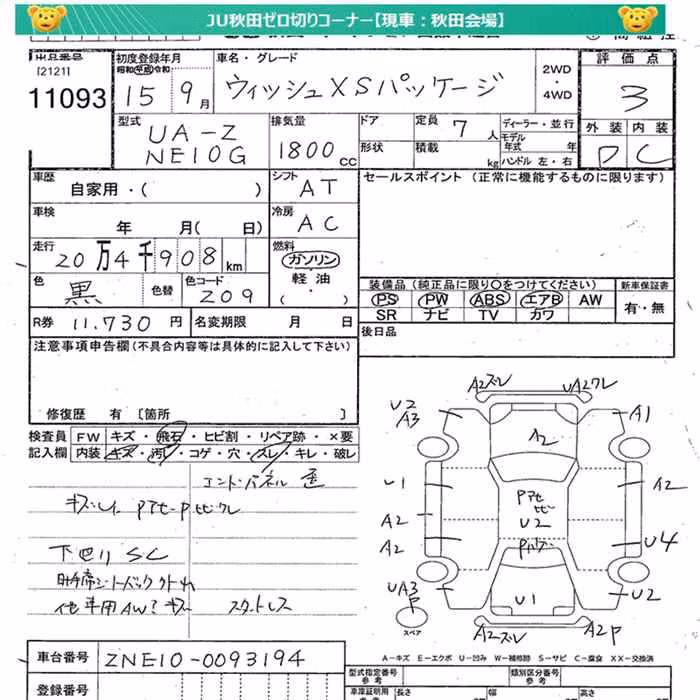 JU秋田ゼロ切りコーナー【現車：秋田会場】
出品番号
[2121]
11093
初度登録年月
昭和 平成 令和
15 9月
車名・グレード
ウィッシュ XSパッケージ
2WD
・
4WD
評価点
3
外装 内装
D C
型式
UA-Z
NE10G
排気量
1800cc
ドア
形状
定員 7人
積載 kg
ディーラー・並行
モデル
年式 年
ハンドル 左・右
車歴
自家用・( )
シフト
AT
セールスポイント (正常に機能するものに限ります)
車検
年 月( 日)
冷房
AC
走行
20万4千908km
燃料
ガソリン
軽油
( ・ )
色
黒
色替
色コード
209
装備品 (純正品に限り〇をつけてください)
PS PW ABS エアB AW
SR ナビ TV カワ
新車保証書
有・無
R券 11.730 円
名変期限 月 日
後日品
注意事項申告欄 (不具合内容等は具体的に記入して下さい)
修復歴 有 [箇所 ]
検査員
記入欄
FW キズ・飛石・ヒビ割・リペア跡・×要
内装 キズ・汚レ・コゲ・穴・スレ・キレ・破レ
下廻り SC
スタットレス
A2ズレ
U2
A3
A1
A2
U1
A2
A2
A2
U2
U4
UA3
P
U1
U2
A2ズレ
A2P
スペア
A－キズ E－エクボ U－凹み W－補修跡 S－サビ C－腐食 XX－交換済
車台番号
ZNE10-0093194
登録番号
型式指定番号
参考
類別区分番号
参考
車庫証明用
参考
長さ
幅
高さ